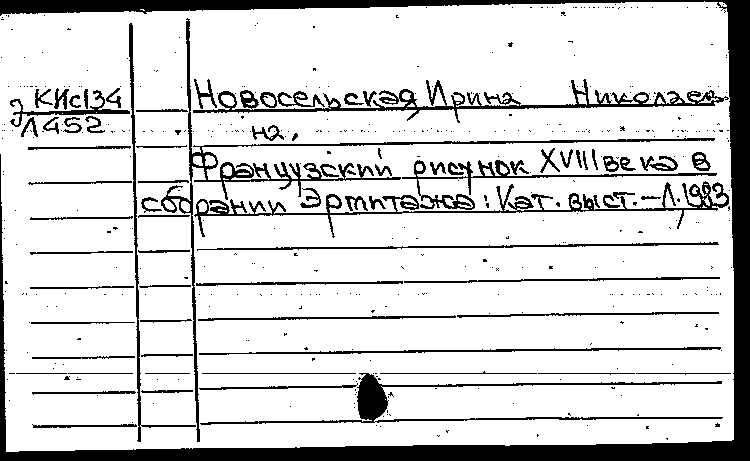 КИс134
Л452
Новосельская, Ирина Николаев
на.
Французский рисунок XVIII века в
сборании Эрмитажа: Кат. выст. – Л., 1983